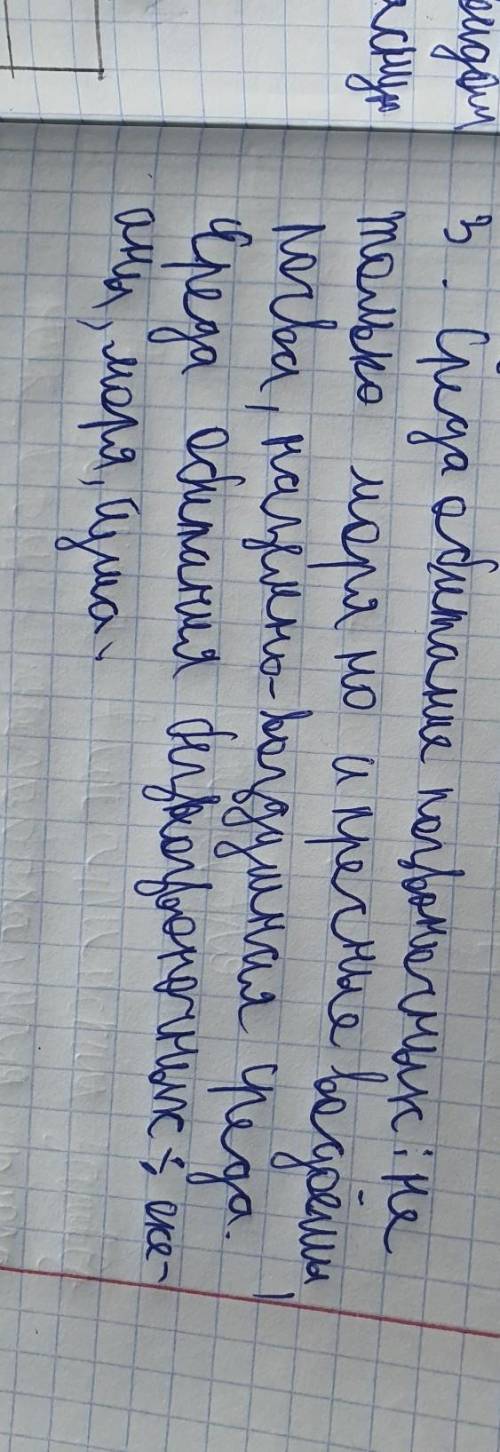 3. Среда обитание позвоночных: не
только моря но и пресные водоёмы,
почва, наземно-воздушная среда.
Среда обитания беспозвоночных:, оке-
аны, моря, суша.